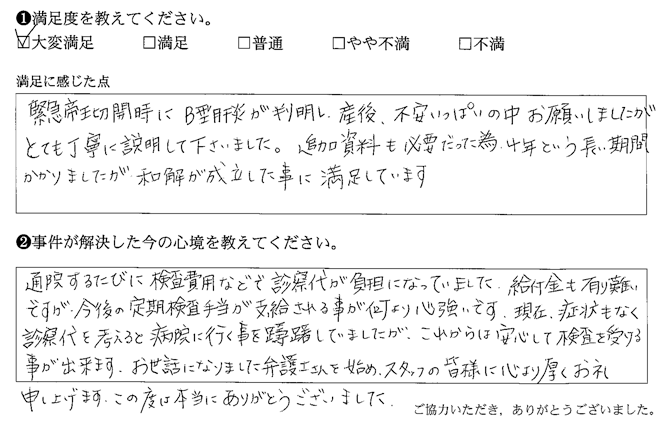 ❶満足度を教えてください。
☑大変満足 □満足 □普通 □やや不満 □不満
満足に感じた点
緊急帝王切開時に B型肝炎が判明し、産後、不安いっぱいの中 お願いしましたが
とても丁寧に説明して下さいました。追加資料も必要だった為、4年という長い期間
かかりましたが 和解が成立した事に 満足しています
❷事件が解決した今の心境を教えてください。
通院するたびに 検査費用などで 診察代が負担になっていました。給付金も有り難い
ですが、今後の定期検査手当が支給される事が何より心強いです。現在、症状もなく
診察代を考えると 病院に行く事を躊躇していましたが、これからは 安心して検査を受ける
事が出来ます。お世話になりました弁護士さんを始め、スタッフの皆様に心より厚くお礼
申し上げます。この度は本当にありがとうございました。
ご協力いただき、ありがとうございました。